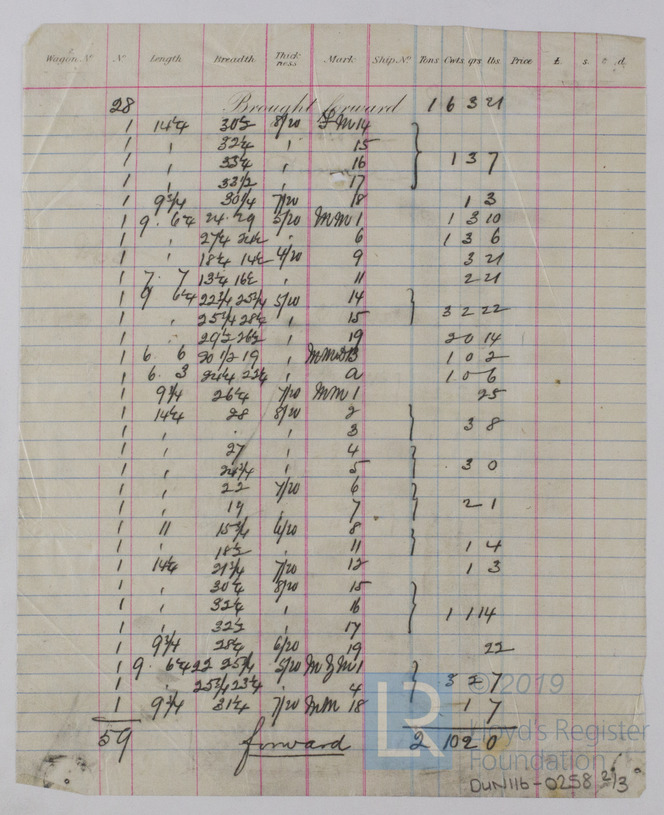 Wagon No No Length Breadth Thickness Mark Ship No Tons Cwts qrs lbs Price £ s. d.
28 Brought forward 1 6 3 21
1 14¼ 30½ 8/20 14
1 " 32¼ " 15
1 " 33¼ " 16 1 3 7
1 " 33½ " 17
1 9¾ 30¼ 7/20 18 1 3
1 9. 6¼ 24. 29 5/20 MM 1 1 3 10
1 " 6 1 3 6
1 " 4/20 9 3 21
1 7. 7 11 2 21
1 9 6¼ 22¾ 25¾ 5/20 14
1 " 25¾ 28¼ " 15 3 2 22
1 " 19 2 0 14
1 6. 6 20 1/2 19 " 1 0 2
1 6. 3 " a 1 0 6
1 9¾ 26¼ 7/20 MM 1 25
1 14¼ 28 8/20 2
1 " " " 3 3 8
1 " 27 " 4
1 " " 5 3 0
1 " 22 7/20 6
1 " 19 " 7 2 1
1 11 15¾ 6/20 8
1 " 18½ " 11 1 4
1 14¼ 21¾ 7/20 12 1 3
1 " 30¼ 8/20 15
1 " 32¼ " 16 1 1 14
1 " 32½ 17
1 9¾ 28¼ 6/20 19 22
1 9. 6¼ 22 25¾ 5/20 1
1 " 25¾ 23¼ 4 3 2 7
1 9¾ 31¼ 7/20 MM 18 1 7
59 forward 2 10 2 0
LR
© 2019
Lloyd's Register
Foundation
DUN116-0258 2/3